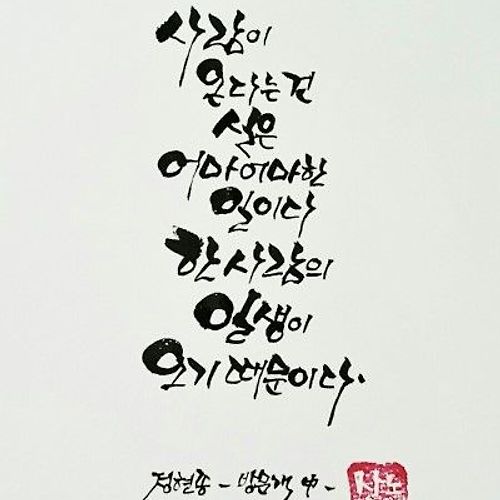 사람이
온다는 건
실은
어마어마한
일이다
한 사람의
일생이
오기 때문이다.
정현종 - 방문객 中 -